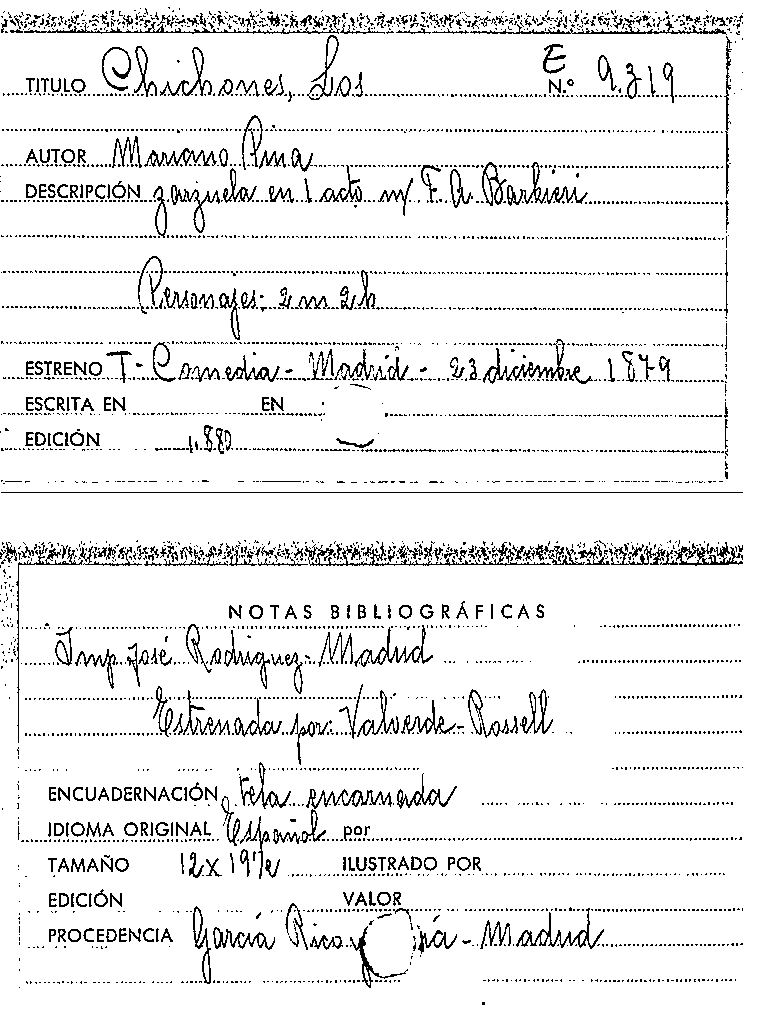 TITULO Chichones, Los E N.º 9.319
AUTOR Mariano Pina
DESCRIPCIÓN zarzuela en 1 acto m/ F. A. Barbieri
Personajes: 2 m 2 h
ESTRENO T- Comedia - Madrid - 23 diciembre 1879
ESCRITA EN EN
EDICIÓN 1.880
NOTAS BIBLIOGRÁFICAS
Imp. José Rodriguez - Madrid
Estrenada por: Valverde - Rossell
ENCUADERNACIÓN tela encarnada
IDIOMA ORIGINAL Español por
TAMAÑO 12 x 19 ILUSTRADO POR
EDICIÓN VALOR
PROCEDENCIA García Rico y - Madrid